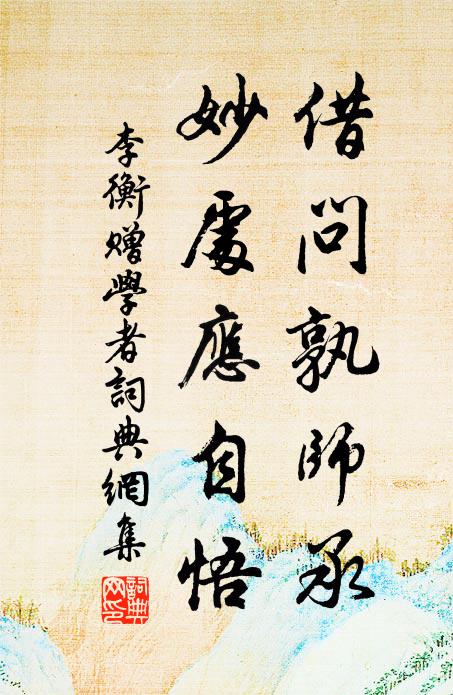 借問孰師承
妙處應自悟
李衡贈學者詞典網集
詞典網印